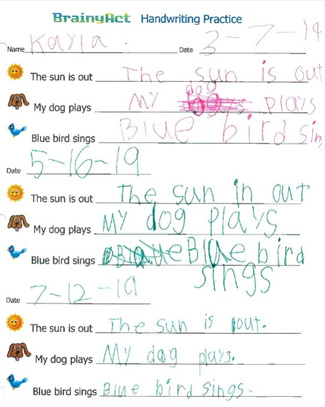 BrainyAct Handwriting Practice
Name Kayla. Date 3-7-19
The sun is out The sun is out
dog
My dog plays My plays
Blue bird sings Blue bird sin
Date 5-16-19
The sun is out The sun in out
My dog plays My dog plays
Blue bird sings Blue bird
sings
Date 7-12-19
The sun is out The sun is out.
My dog plays My dog plays.
Blue bird sings Blue bird sings.